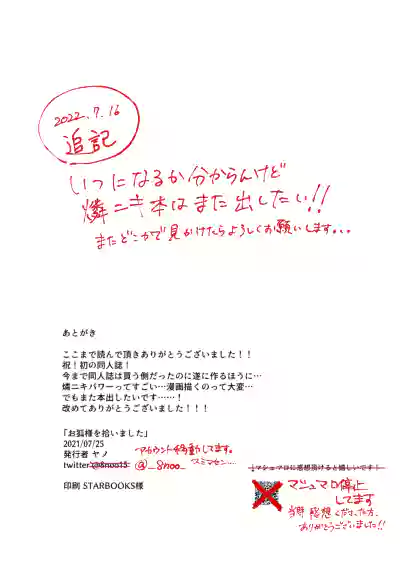 2022.7.16
追記
いつになるか分からんけど
燐ニキ本はまた出したい!!
またどこかで見かけたらよろしくお願いします...
あとがき
ここまで読んで頂きありがとうございました！！
祝！初の同人誌！
今まで同人誌は買う側だったのに遂に作るほうに…
燐ニキパワーってすごい…漫画描くのって大変…
でもまた本出したいです……！
改めてありがとうございました！！！
「お狐様を拾いました」
2021/07/25
発行者 ヤノ
アカウント移動してます。
twitter @8noo15 @_8noo_
スミマセン...
印刷 STARBOOKS様
↓マシュマロに感想頂けると嬉しいです！
マシュマロ停止
してます
当時 感想くださった方、
ありがとうございました!!